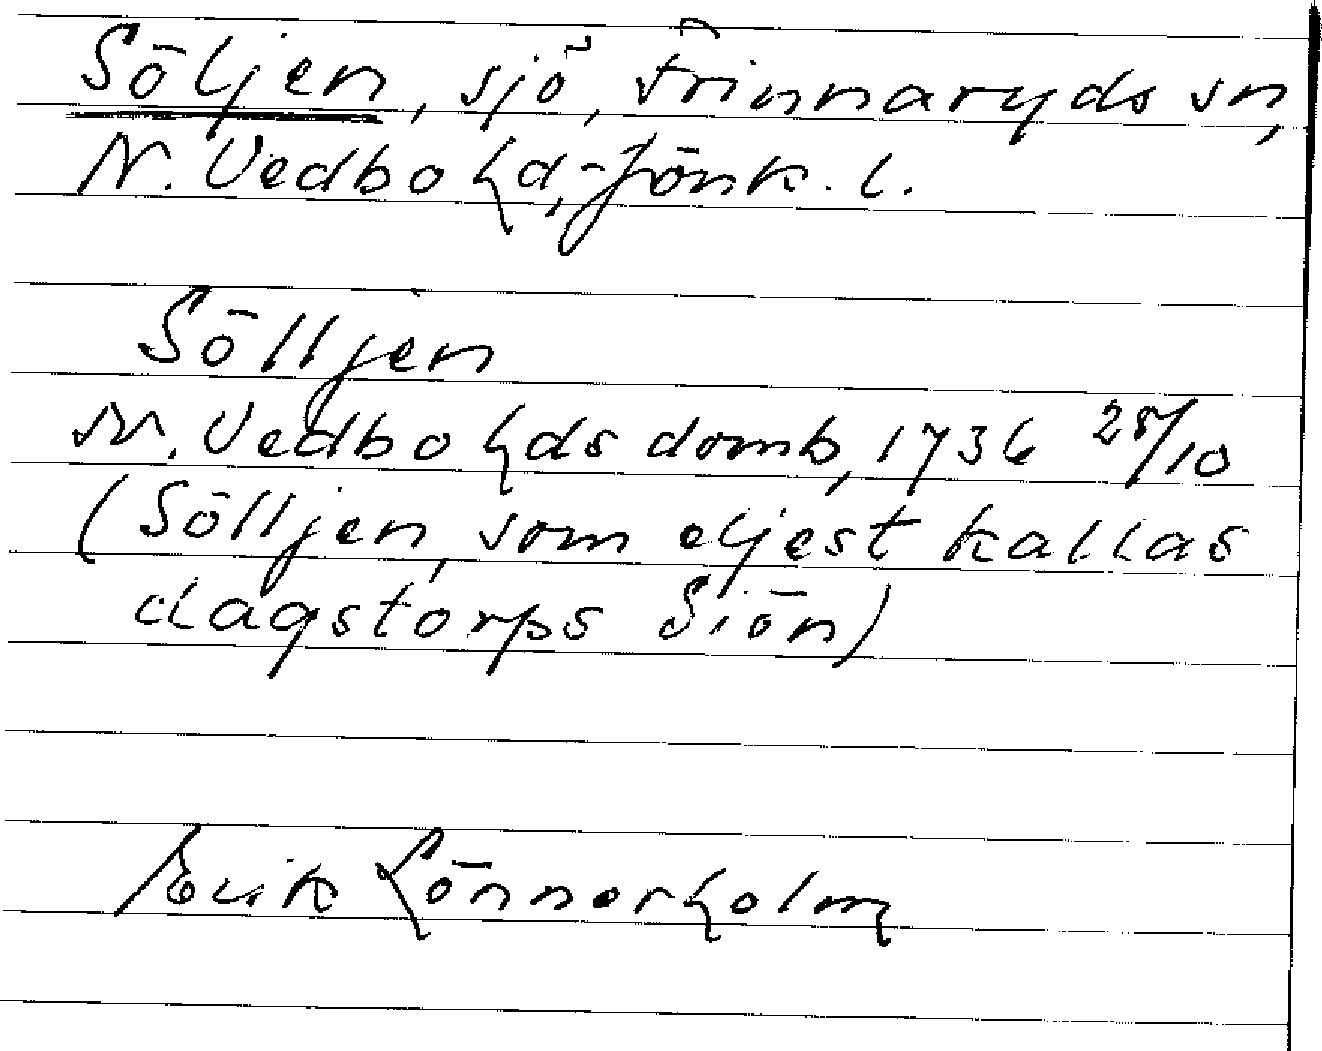 Söljen, sjö, Frinnaryds sn,
N. Vedbo hd, Jönk. l.
Sölljen
N. Vedbo hds domb, 1736 25/10
(Sölljen, som eljest kallas
dagstorps Siön)
Erik Lönnerholm